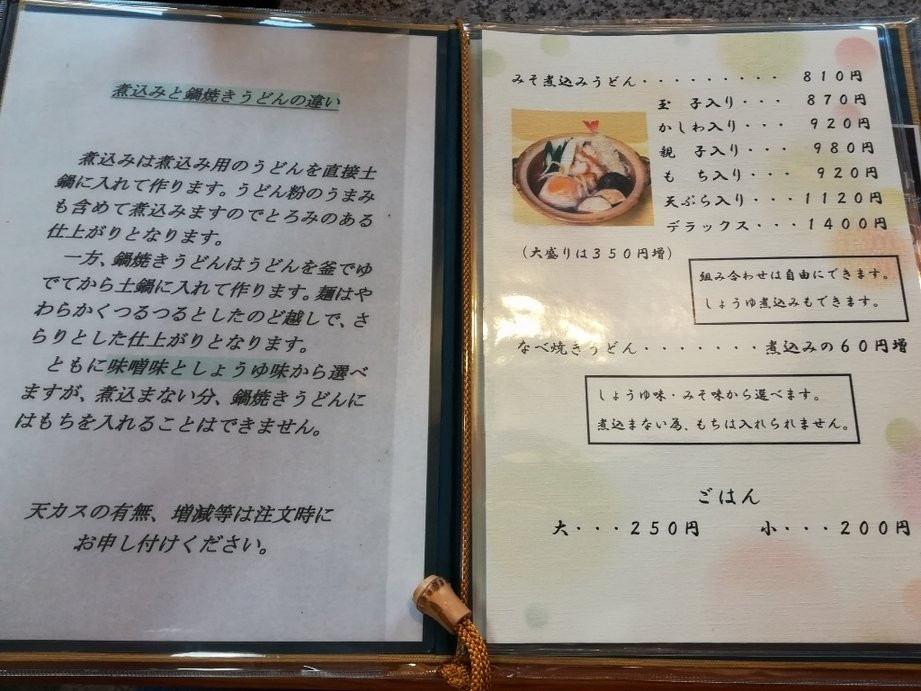 煮込みと鍋焼きうどんの違い
煮込みは煮込み用のうどんを直接土
鍋に入れて作ります。うどん粉のうまみ
も含めて煮込みますのでとろみのある
仕上がりとなります。
一方、鍋焼きうどんはうどんを釜でゆ
でてから土鍋に入れて作ります。麺はや
わらかくつるつるとしたのど越しで、さ
らりとした仕上がりとなります。
ともに味噌味としょうゆ味から選べ
ますが、煮込まない分、鍋焼きうどんに
はもちを入れることはできません。
天カスの有無、増減等は注文時に
お申し付けください。
みそ煮込みうどん・・・・・・・・・ 810円
玉 子入り・・・ 870円
かしわ入り・・・ 920円
親 子入り・・・ 980円
も ち入り・・・ 920円
天ぷら入り・・・1120円
デラックス・・・1400円
(大盛りは350円増)
組み合わせは自由にできます。
しょうゆ煮込みもできます。
なべ焼きうどん・・・・・・・煮込みの60円増
しょうゆ味・みそ味から選べます。
煮込まない為、もちは入れられません。
ごはん
大・・・250円 小・・・200円